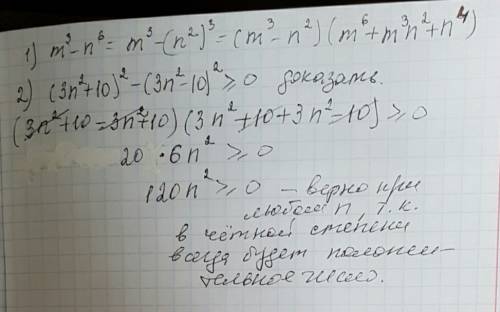 1) m³-n⁶ = m³-(n²)³ = (m³-n²)(m⁶+m³n²+n⁴)
2) (3n²+10)²-(3n²-10)² ≥ 0 доказать.
(3n²+10-3n²+10)(3n²+10+3n²-10) ≥ 0
20 · 6n² ≥ 0
120n² ≥ 0 - верно при
любом n, т.к.
в чётной степени
всегда будет положи-
тельное число.